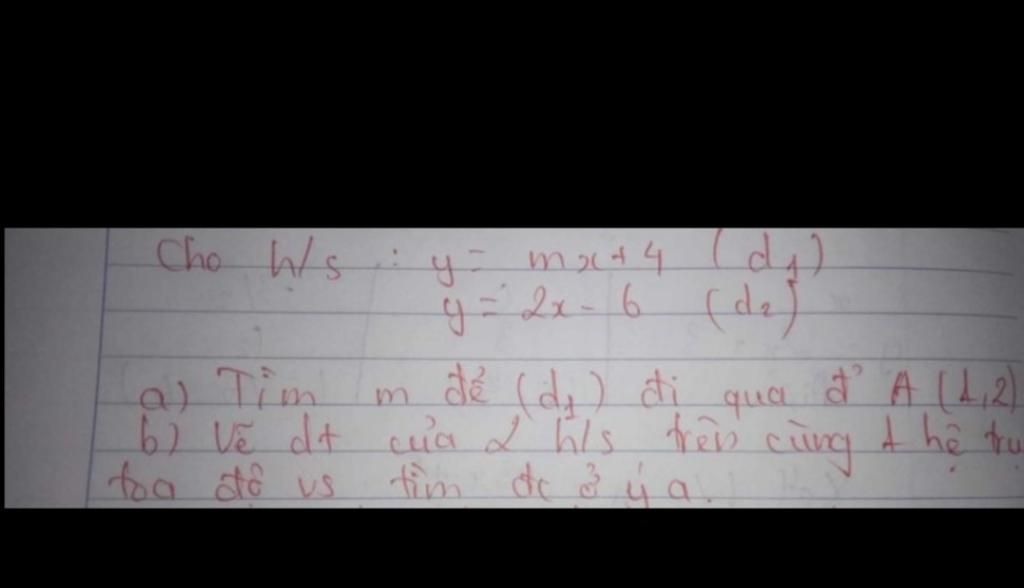 Cho h/s : y = mx + 4 (d₁)
y = 2x - 6 (d₂)
a) Tìm m để (d₁) đi qua đ' A (1,2)
b) Vẽ đt của 2 h/s trên cùng 1 hệ
tọa độ vs tìm đc ở ý a.